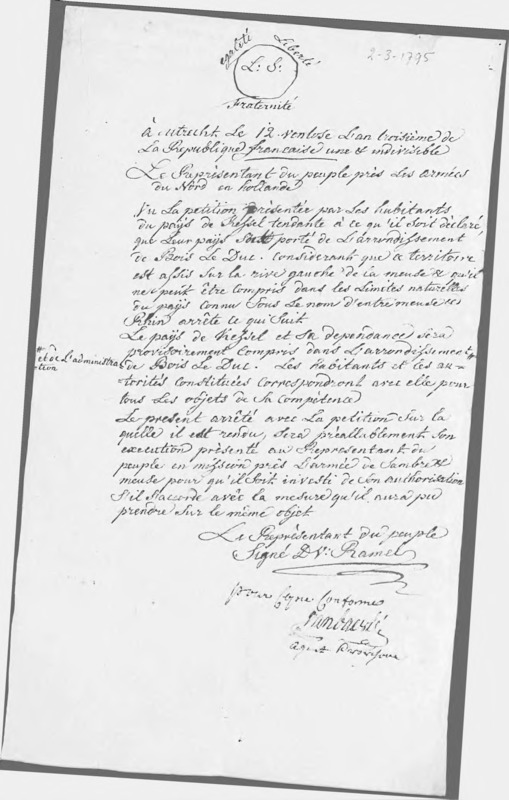 égalité Liberté
L: S:
Fraternité
2-3-1795
à utrecht Le 12 ventose L'an troisième de
La Republique francaise une & indivisible
Le Représentant du peuple près Les armées
du Nord en hollande
Vu La petition présentée par Les habitants
du païs de Kessel tendante à ce qu'il soit déclaré,
que Leur païs soit porté de L'arrondissement
de Bois Le Duc. Considerant que ce territoire
est assis sur La rive gauche de la meuse & qu'il
ne peut être compris dans les Limites naturelles
du païs connu sous Le nom d'entre meuse &
Rhin arrête ce qui suit
Le païs de Kessel et sa dependance sera
provisoirement compris dans L'arrondissement #
# et de L'administra
tion
de Bois Le Duc. Les habitants et les au-
torités Constituées correspondront avec elle pour
tous Les objets de sa compétence
Le present arrêté avec La petition sur la
quelle il est rendu, sera préallablement son
execution présenté au Representant du
peuple en mission près L'armée de Sambre &
meuse pour qu'il soit investi de son authorisation
s'il s'accorde avec la mesure qu'il aura pu
prendre sur le même objet
Le Représentant du peuple
Signé D. V: Ramel
pour Copie Conforme
agent